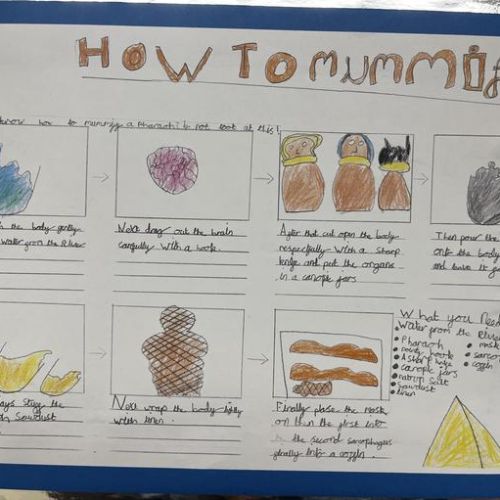 HOW TO MUMMIf
know how to mummify a Pharaoh if not look at this!
the body gently
water from the River
Next drag out the brain
carfully with a hook
After that cut open the body
respectfully with a sharp
knife and put the organs
in a canopic jars
Then pour the
onto the body
and leave it f
ays stuff the
th sawdust
Next wrap the body tightly
with linen.
Finally place the mask
on then the first into
the second sarcophagus
finally into a coffin.
What you need
water from the River
Pharaoh
hook
A sharp knife
canopic jars
natron salt
sawdust
linen
mask
sarco
coffin